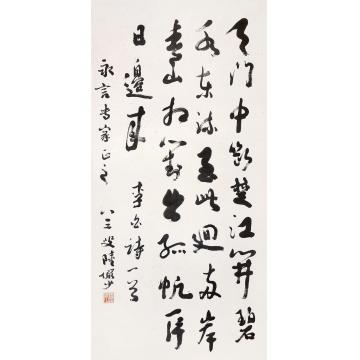 天门中断楚江开碧
水东流至此迴两岸
青山相对出孤帆一片
日边来 李白诗一首
永言书家正之
八三叟陆俨少